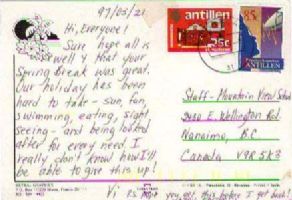 97/03/21
Hi, Everyone!
Sure hope all is
well & that your
Spring Break was great.
Our holiday has been
hard to take - sun, fun,
swimming, eating, sight
seeing - and being looked
after for every need. I
really don't know how I'll
be able to give this up!
Vi
P.S. might
you get this before I get back!
antillen
25c
85c
ANTILLEN
Staff - Mountain View School
E. Wellington Rd.
Nanaimo, B.C.
Canada V9R 5K3